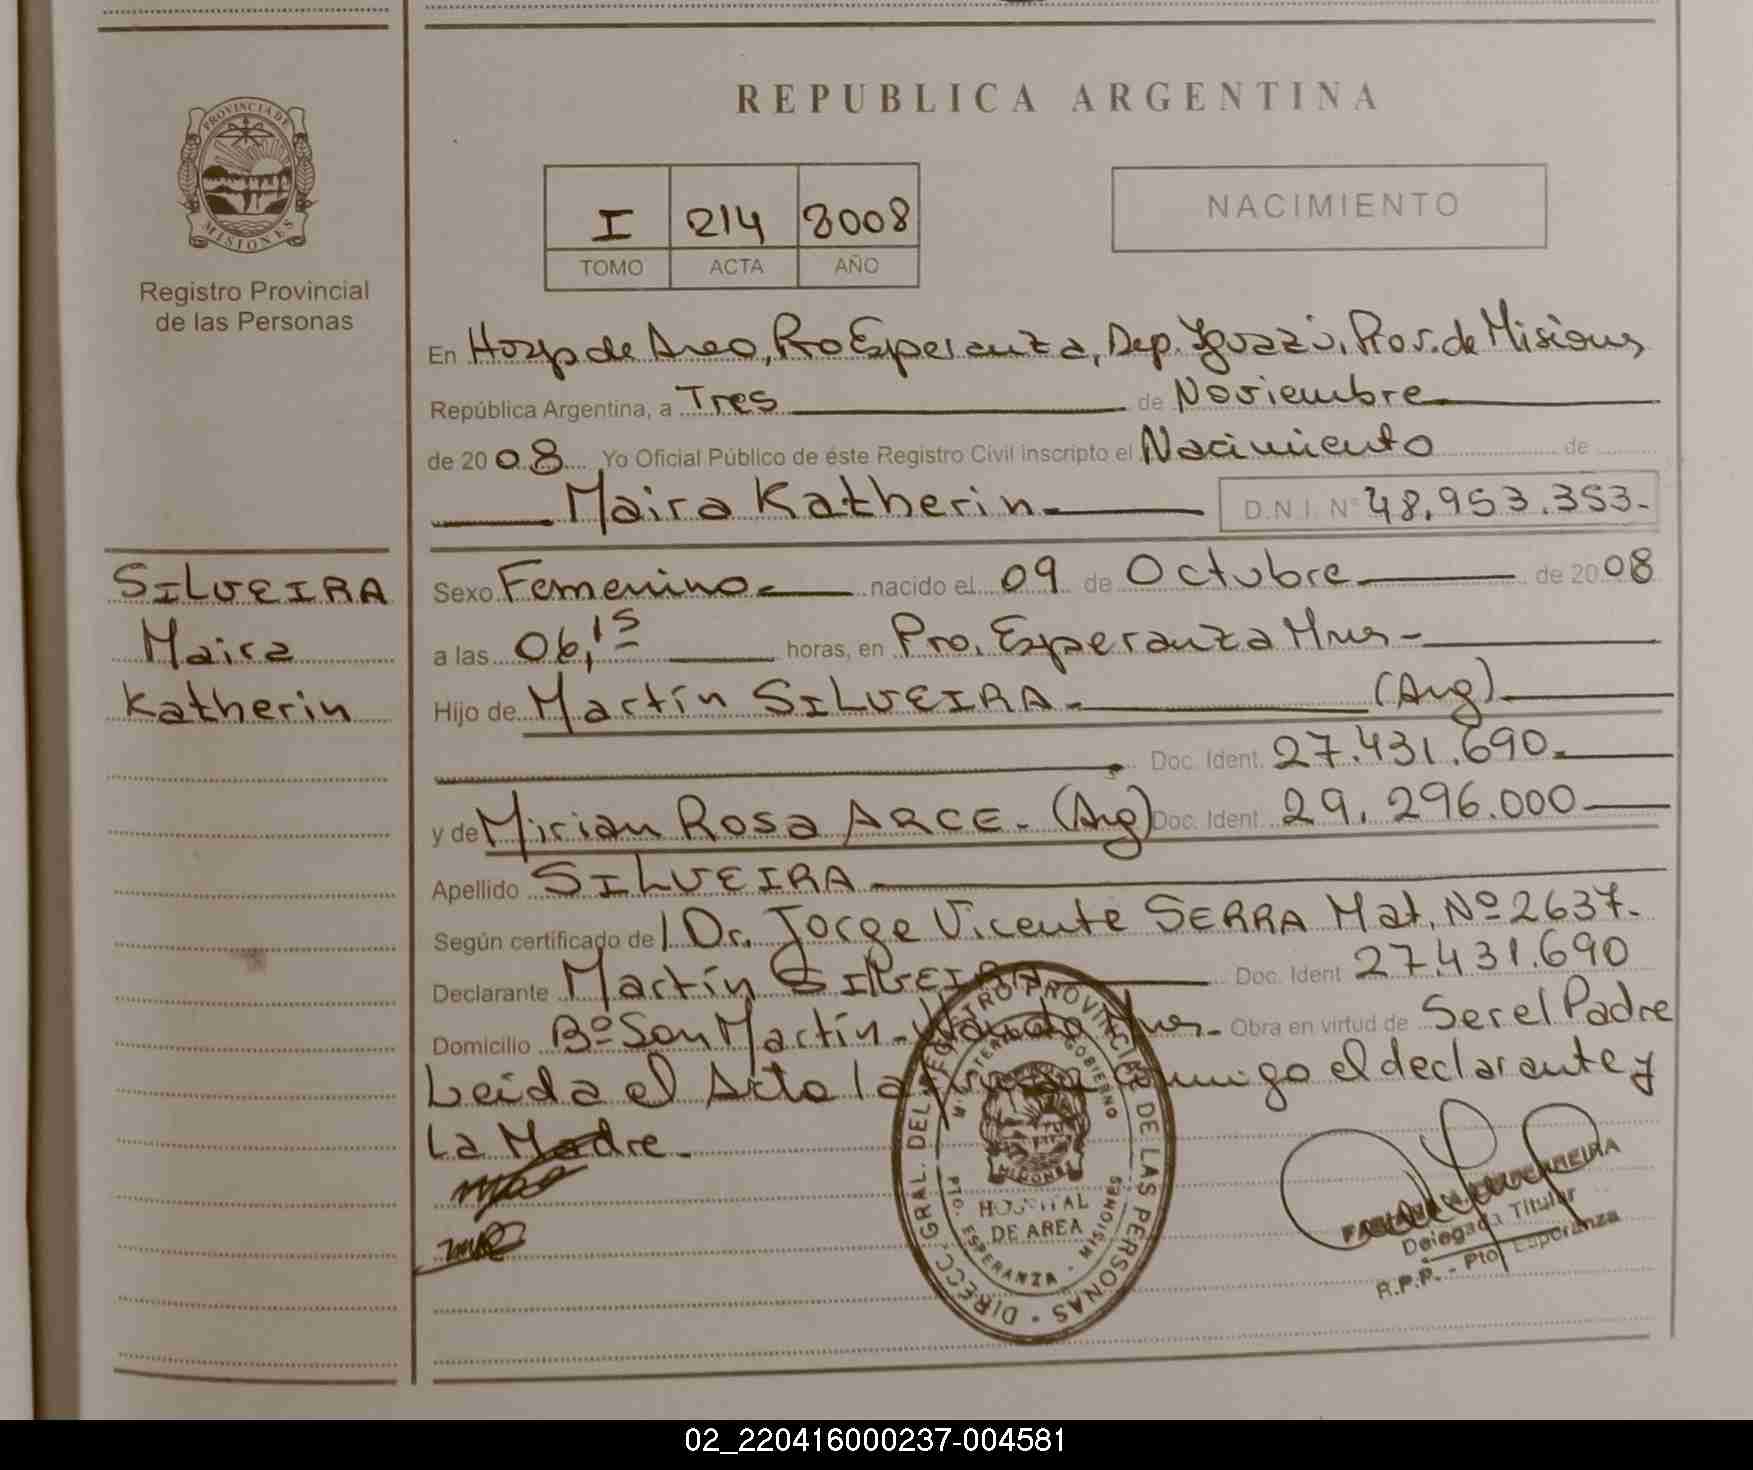 REPUBLICA ARGENTINA
PROVINCIA DE MISIONES
Registro Provincial
de las Personas
I 214 2008
TOMO ACTA AÑO
NACIMIENTO
En Hosp de Area, Pto Esperanza, Dep. Iguazú, Prov. de Misiones
República Argentina, a Tres de Noviembre
de 2008 Yo Oficial Público de éste Registro Civil inscripto el Nacimiento de
Maira Katherin D.N.I. Nº 48.953.353-
SILVEIRA
Maira
Katherin
Sexo Femenino nacido el 09 de Octubre de 2008
a las 06,15 horas, en Pto. Esperanza Mnes-
Hijo de Martín SILVEIRA (Arg)
Doc. Ident. 27.431.690
y de Mirian Rosa ARCE. (Arg) Doc. Ident. 29.296.000
Apellido SILVEIRA
Según certificado de Dr. Jorge Vicente SERRA Mat. Nº 2637-
Declarante Martín SILVEIRA Doc. Ident 27.431.690
Domicilio Bº San Martín - Wanda Mnes- Obra en virtud de Ser el Padre
Leida el Acta la firman conmigo el declarante y
La Madre.
DIRECC. GRAL. DEL REGISTRO PROVINCIAL DE LAS PERSONAS
MINISTERIO GOBIERNO
MISIONES
HOSPITAL
DE AREA
PTO. ESPERANZA - MISIONES
Delegada Titular
R.P.P. - Pto Esperanza
02_220416000237-004581